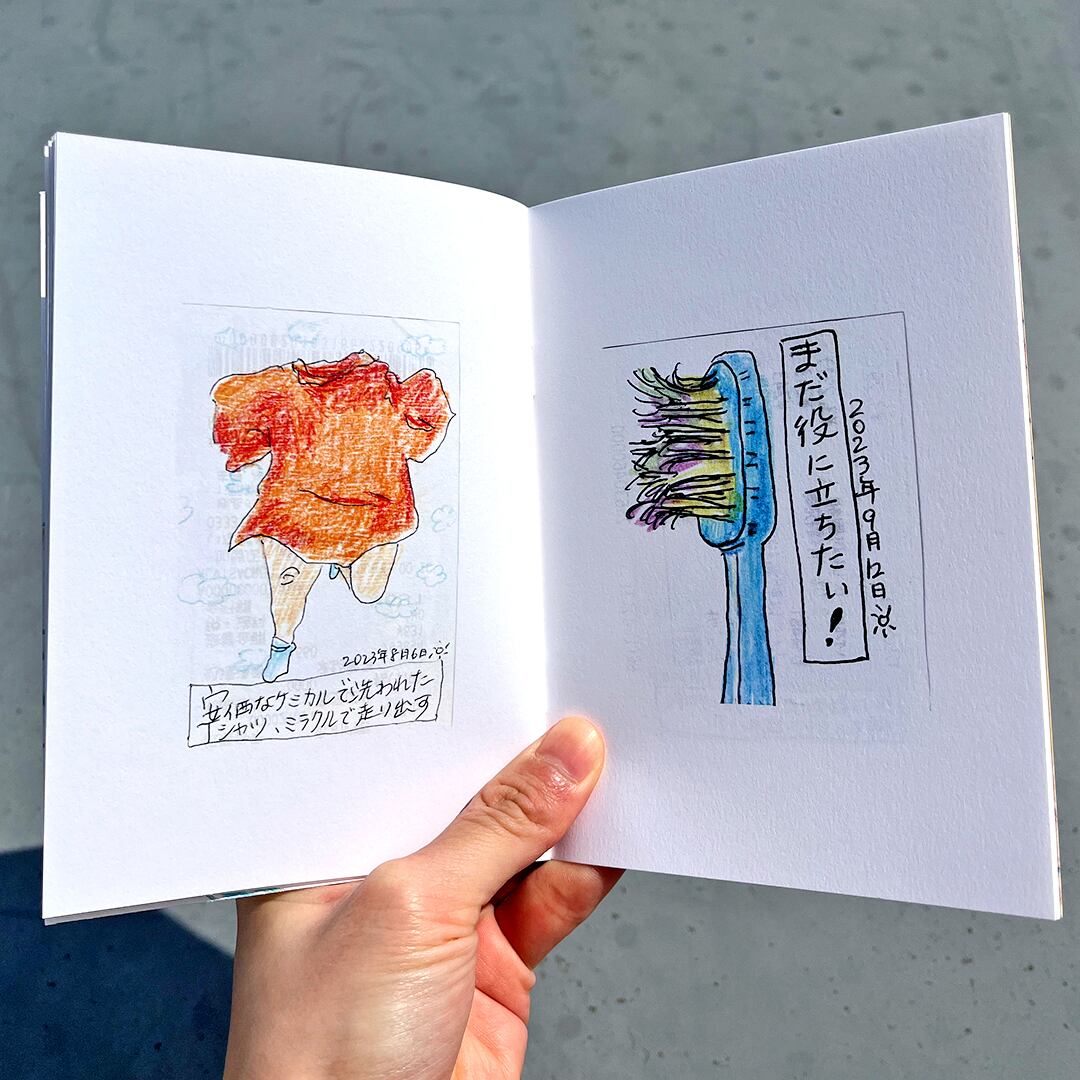 2023年8月6日
安価なケミカルで洗われた
シャツ、ミラクルで走り出す
まだ役に立ちたい!
2023年9月12日